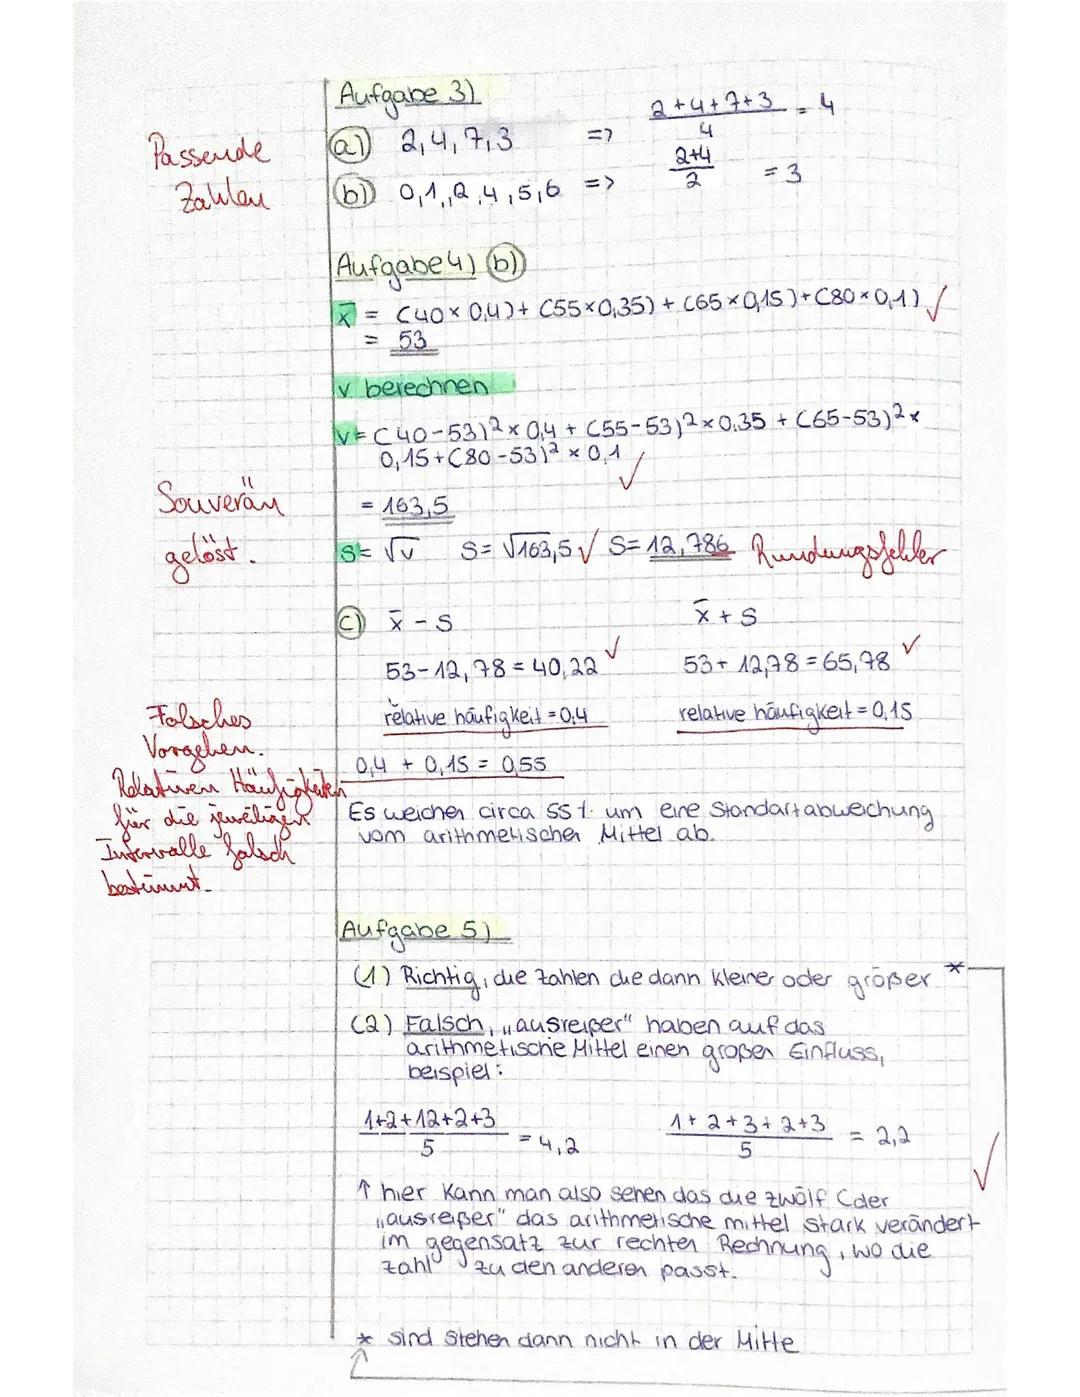 Aufgabe 3)
Passende
Zahlen
a) 2,4,7,3 => (2+4+7+3)/4 = 4
b) 0,1,,2,4,5,6 => (2+4)/2 = 3
Aufgabe 4) b)
x̄ = (40 × 0,4) + (55×0,35) + (65×0,15) + (80×0,1) ✓
= 53
v berechnen
v = (40-53)² × 0,4 + (55-53)² × 0.35 + (65-53)² ×
0,15 + (80-53)² × 0,1 ✓
Souverän
gelöst.
= 163,5
S = √v S = √163,5 ✓ S = 12,786 Rundungsfehler
c) x̄ - S x̄ + S
53-12,78 = 40,22 ✓ 53+ 12,78 = 65,78 ✓
relative häufigkeit = 0,4 relative häufigkeit = 0,15
Falsches
Vorgehen.
Relativen Häufigkeiten
für die jeweiligen
Intervalle falsch
bestimmt.
0,4 + 0,15 = 0,55
Es weichen circa 55% um eine Standartabweichung
vom arithmetischen Mittel ab.
Aufgabe 5)
(1) Richtig, die zahlen die dann kleiner oder größer *
(2) Falsch, „ausreißer" haben auf das
arithmetische Mittel einen großen Einfluss,
beispiel:
(1+2+12+2+3)/5 = 4,2 (1+2+3+2+3)/5 = 2,2
✓
↑ hier kann man also sehen das die zwölf (der
„ausreißer" das arithmetische mittel stark verändert
im gegensatz zur rechten Rechnung, wo die
zahl zu den anderen passt.
* sind stehen dann nicht in der Mitte